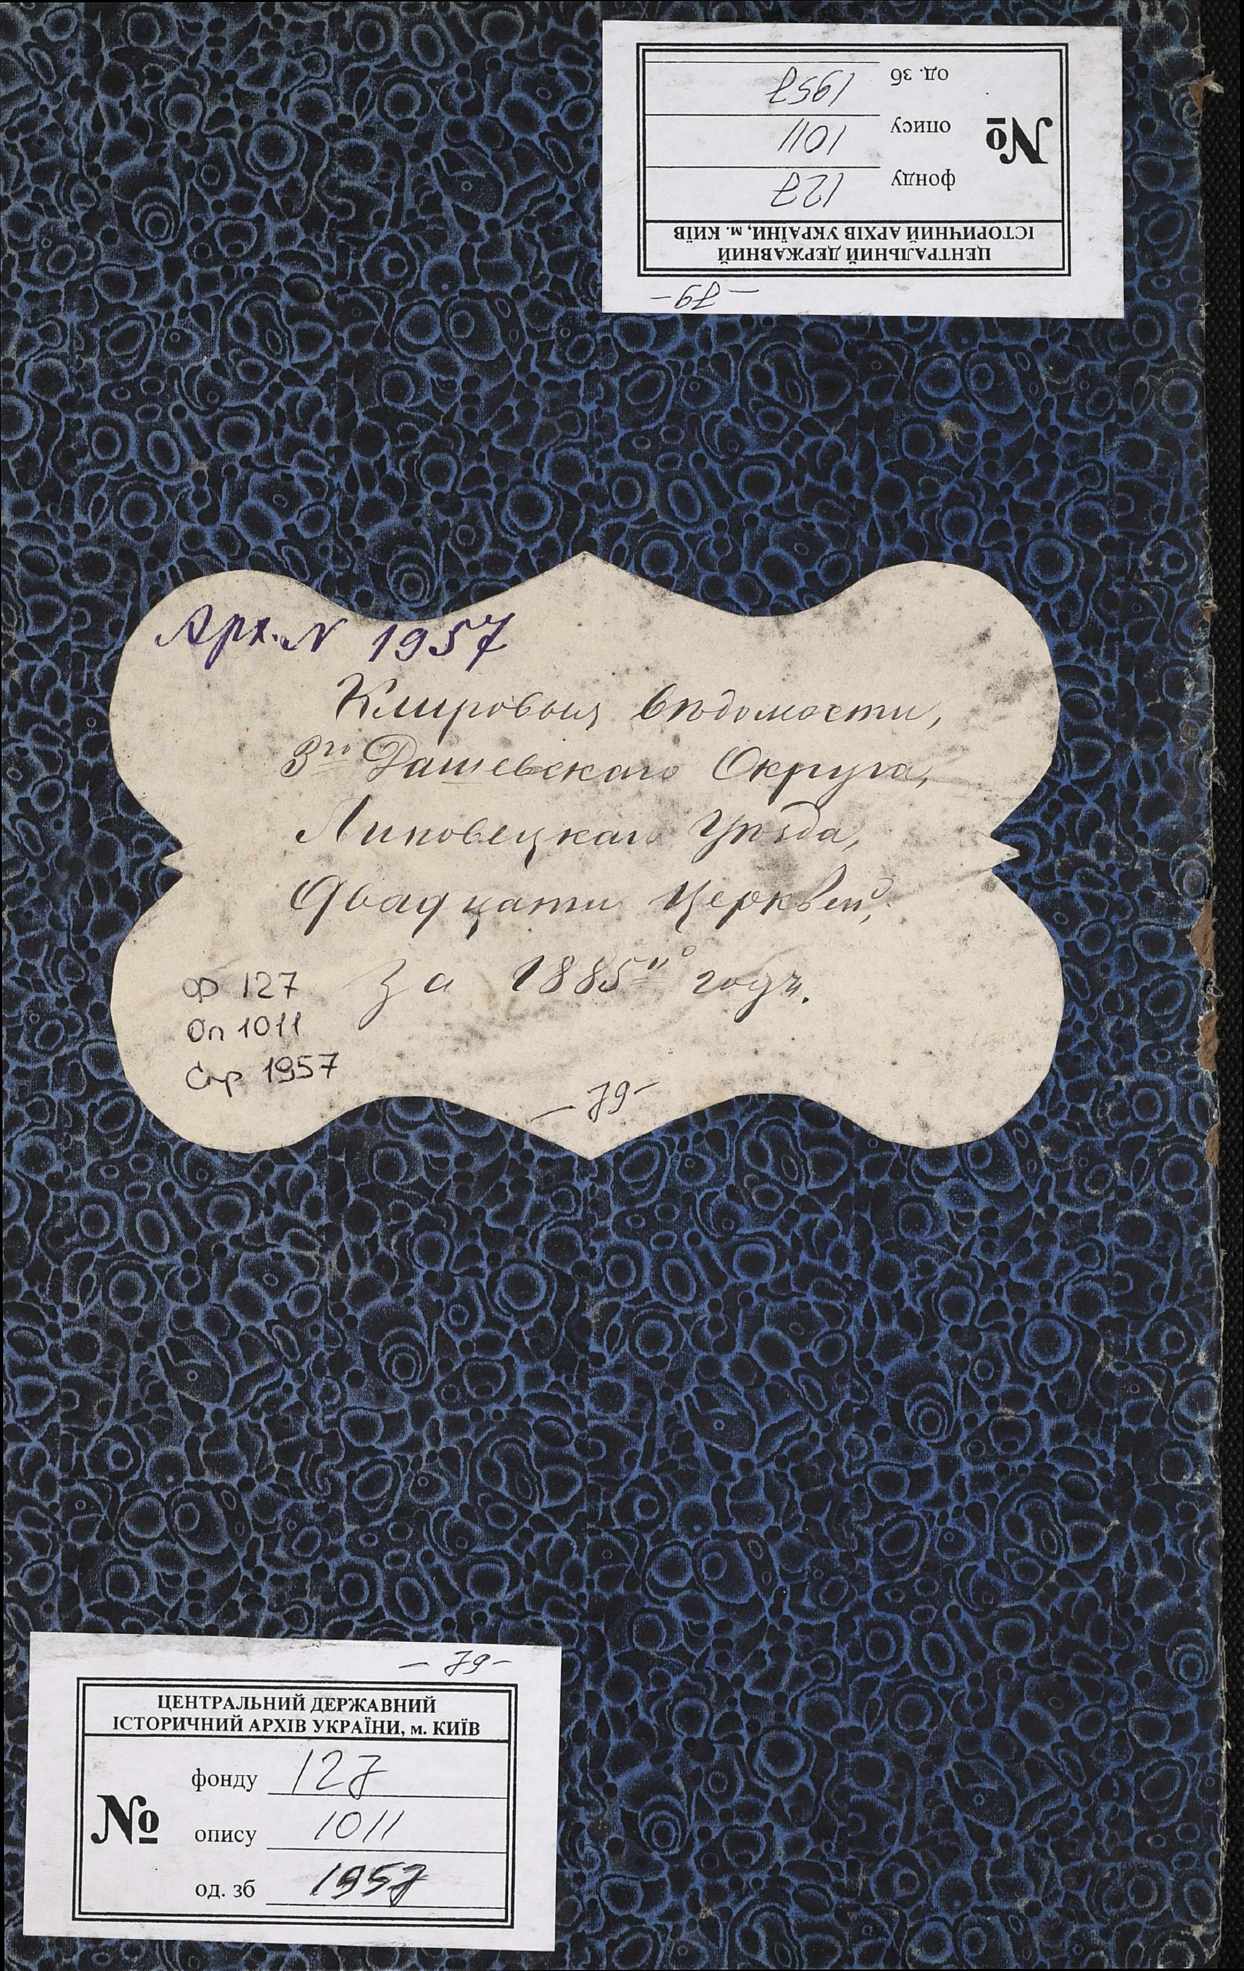 - 79 -
ЦЕНТРАЛЬНИЙ ДЕРЖАВНИЙ
ІСТОРИЧНИЙ АРХІВ УКРАЇНИ, м. КИЇВ
№
фонду 127
опису 1011
од. зб 1957
Арх. N 1957
Клировыя вѣдомости,
3го Дашевскаго Округа,
Липовецкаго Уѣзда,
Двадцати Церквей,
За 1885й годъ.
Ф 127
Оп 1011
Спр 1957
- 79 -
- 79 -
ЦЕНТРАЛЬНИЙ ДЕРЖАВНИЙ
ІСТОРИЧНИЙ АРХІВ УКРАЇНИ, м. КИЇВ
№
фонду 127
опису 1011
од. зб 1957